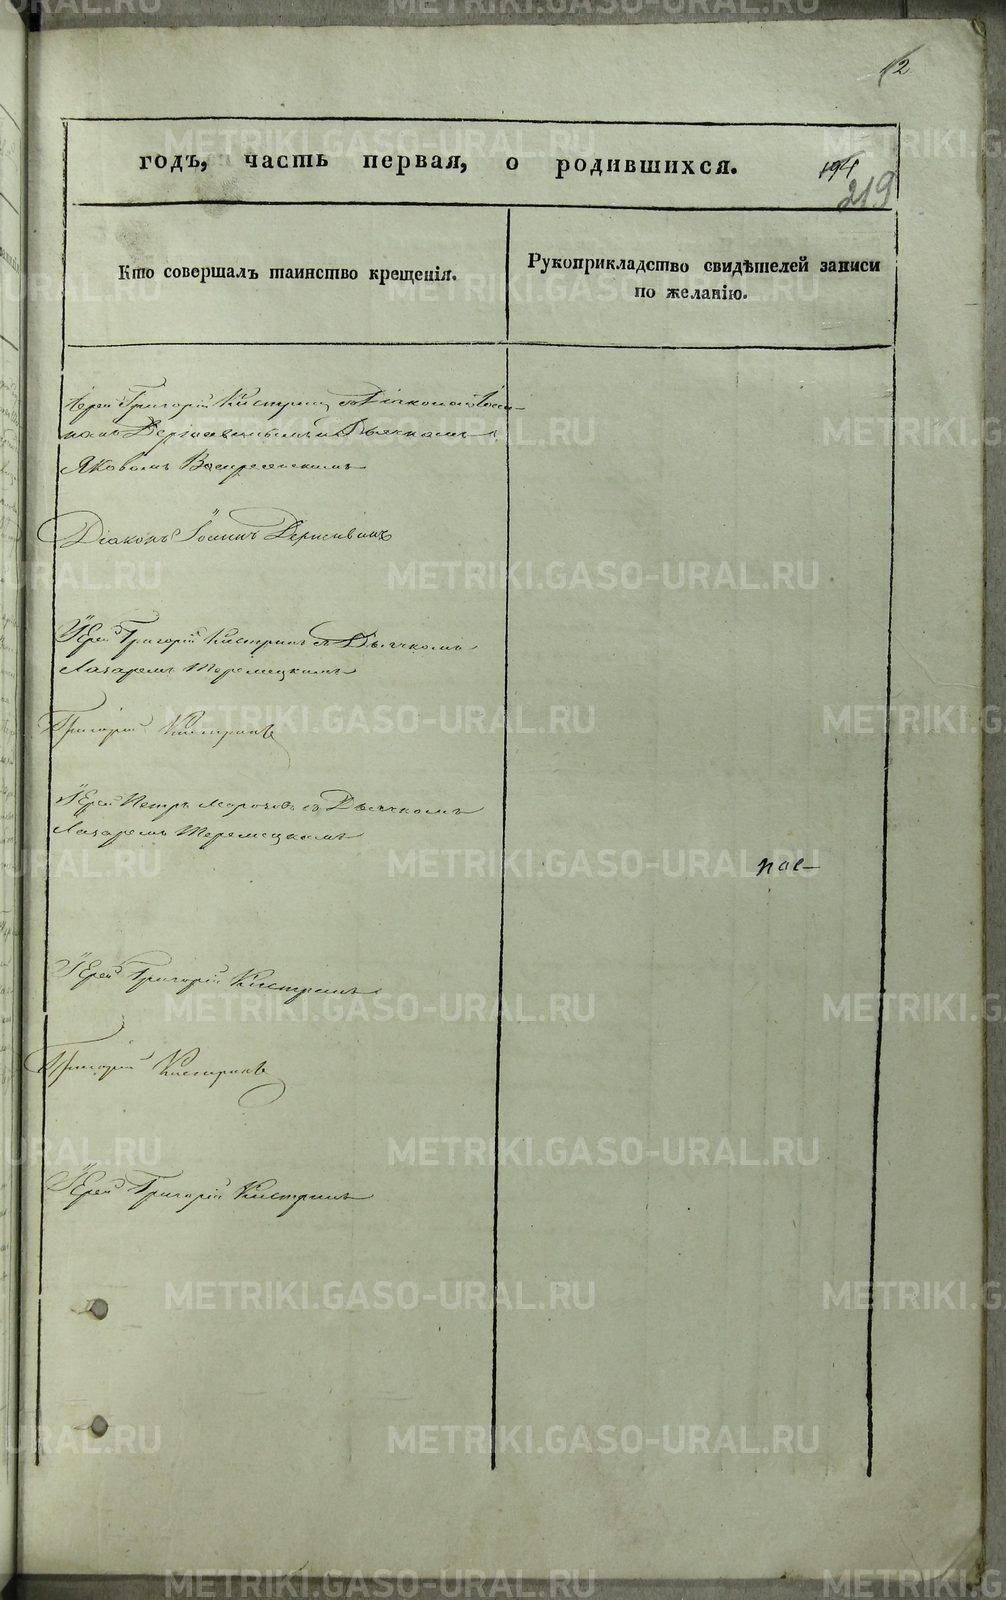 2
годъ, часть первая, о родившихся.
194
219
Кто совершалъ таинство крещенія.
Рукоприкладство свидѣтелей записи
по желанію.
Іерей Григорій Кистринъ съ Діакономъ
и Дьячкомъ
Яковомъ Воскресенскимъ
Діаконъ Іоаннъ
Іерей Григорій Кистринъ съ Дьячкомъ
Лазаремъ Теремецкимъ
Григорій Кистринъ
Іерей Петръ Морозовъ съ Дьячкомъ
Лазаремъ Теремецкимъ
Іерей Григорій Кистринъ
Григорій Кистринъ
Іерей Григорій Кистринъ
METRIKI.GASO-URAL.RU